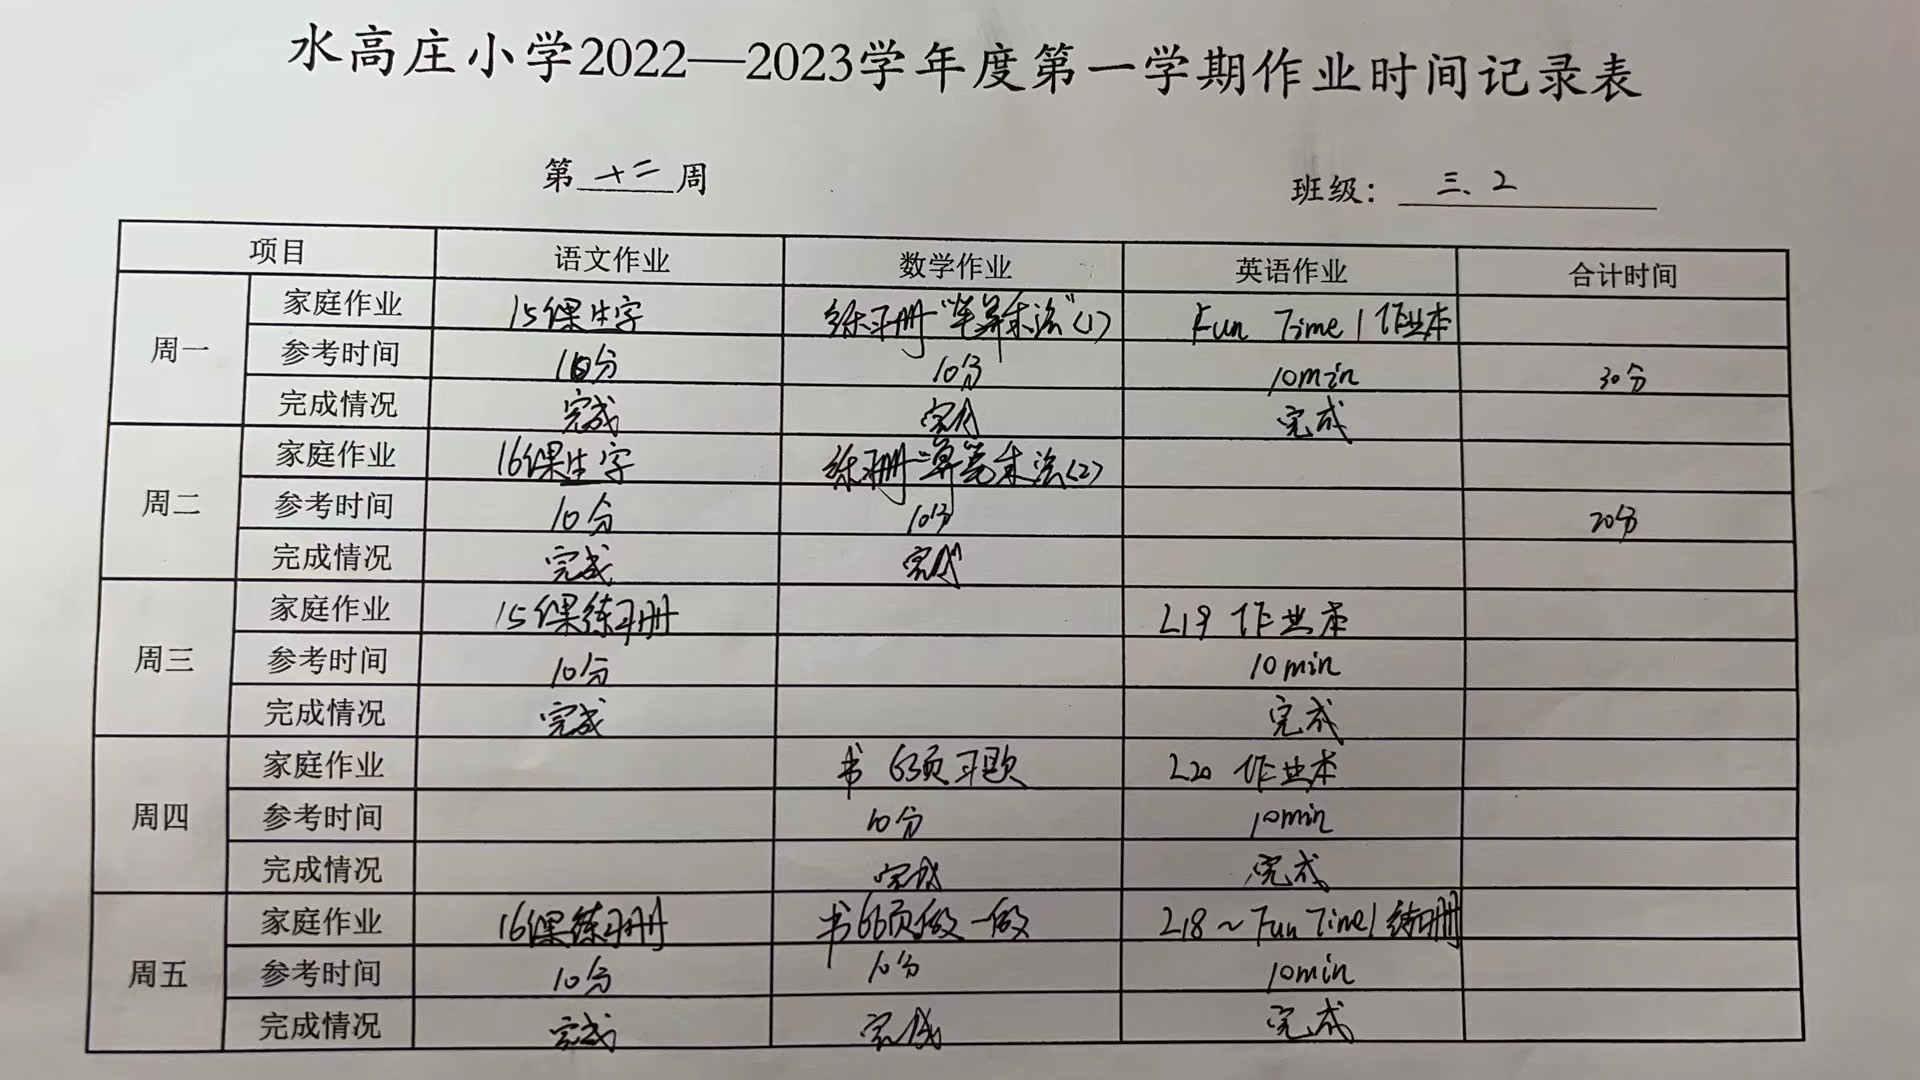 水高庄小学2022—2023学年度第一学期作业时间记录表
第 十二 周 班级： 三、2
项目 语文作业 数学作业 英语作业 合计时间
周一 家庭作业 15课生字 练习册“笔算乘法”(1) Fun Time 1 作业本
参考时间 10分 10分 10min 30分
完成情况 完成 完成 完成
周二 家庭作业 16课生字 练习册 笔算乘法(2)
参考时间 10分 10分 20分
完成情况 完成 完成
周三 家庭作业 15课练习册 L19 作业本
参考时间 10分 10min
完成情况 完成 完成
周四 家庭作业 书 63页习题 L20 作业本
参考时间 10分 10min
完成情况 完成 完成
周五 家庭作业 16课练习册 书66页做一做 L18~Fun Time1 练习册
参考时间 10分 10分 10min
完成情况 完成 完成 完成